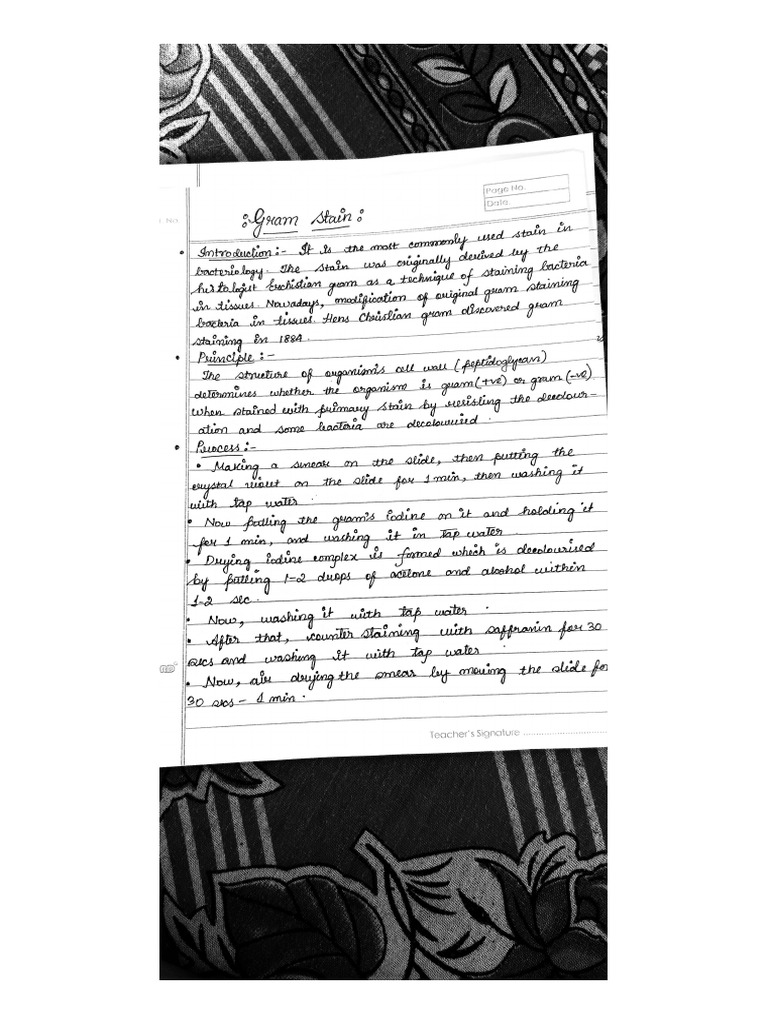 t. No.
Page No.
Date.
:Gram Stain:
• Introduction:- It is the most commonly used stain in
bacteriology. The stain was originally derived by the
histologist Euchistian gram as a technique of staining bacteria
in tissues. Nowadays, modification of original gram staining
bacteria in tissues. Hens Christian gram discovered gram
staining in 1884.
• Principle:-
The structure of organism's cell wall (peptidoglycan)
determines whether the organism is gram(+ve) or gram(-ve)
when stained with primary stain by resisting the decolour-
ation and some bacteria are decolourised.
• Process:-
• Making a smear on the slide, then putting the
crystal violet on the slide for 1 min, then washing it
with tap water.
• Now putting the gram's iodine on it and holding it
for 1 min, and washing it in tap water.
• Drying iodine complex is formed which is decolourised
by putting 1-2 drops of acetone and alcohol within
1-2 sec.
• Now, washing it with tap water.
• After that, counter staining with saffranin for 30
secs and washing it with tap water.
• Now, air drying the smear by moving the slide for
30 secs - 1 min.
Teacher's Signature ........................